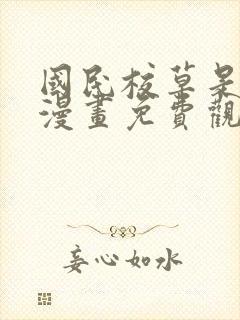 國民校草是
漫畫免費觀
妄心如水